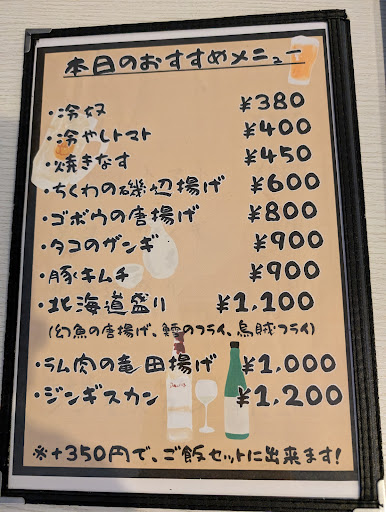 本日のおすすめメニュー
・冷奴 ¥380
・冷やしトマト ¥400
・焼きなす ¥450
・ちくわの磯辺揚げ ¥600
・ゴボウの唐揚げ ¥800
・タコのザンギ ¥900
・豚キムチ ¥900
・北海道盛り ¥1,100
(幻魚の唐揚げ、鱈のフライ、烏賊フライ)
・ラム肉の竜田揚げ ¥1,000
・ジンギスカン ¥1,200
※+350円で、ご飯セットに出来ます!